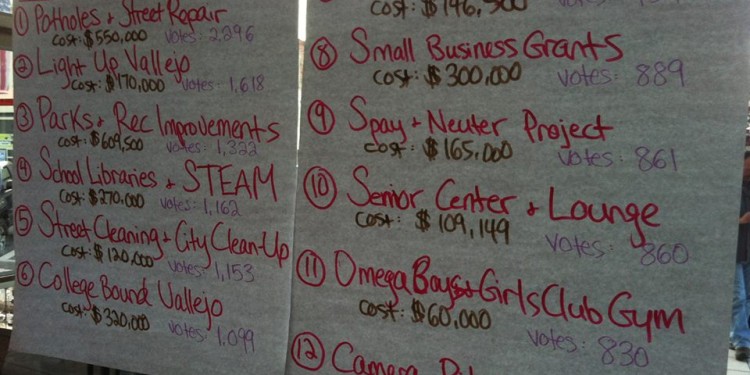 ① Potholes + Street Repair
Cost: $550,000 Votes: 2,296
② Light Up Vallejo
Cost: $170,000 Votes: 1,618
③ Parks + Rec Improvements
Cost: $609,500 Votes: 1,322
④ School Libraries + STEAM
Cost: $270,000 Votes: 1,162
⑤ Street Cleaning + City Clean-Up
Cost: $120,000 Votes: 1,153
⑥ College Bound Vallejo
Cost: $320,000 Votes: 1,099
Cost: $146,500
⑧ Small Business Grants
Cost: $300,000 Votes: 889
⑨ Spay + Neuter Project
Cost: $165,000 Votes: 861
⑩ Senior Center + Lounge
Cost: $109,149 Votes: 860
⑪ Omega Boys + Girls Club Gym
Cost: $60,000 Votes: 830
⑫ Camera